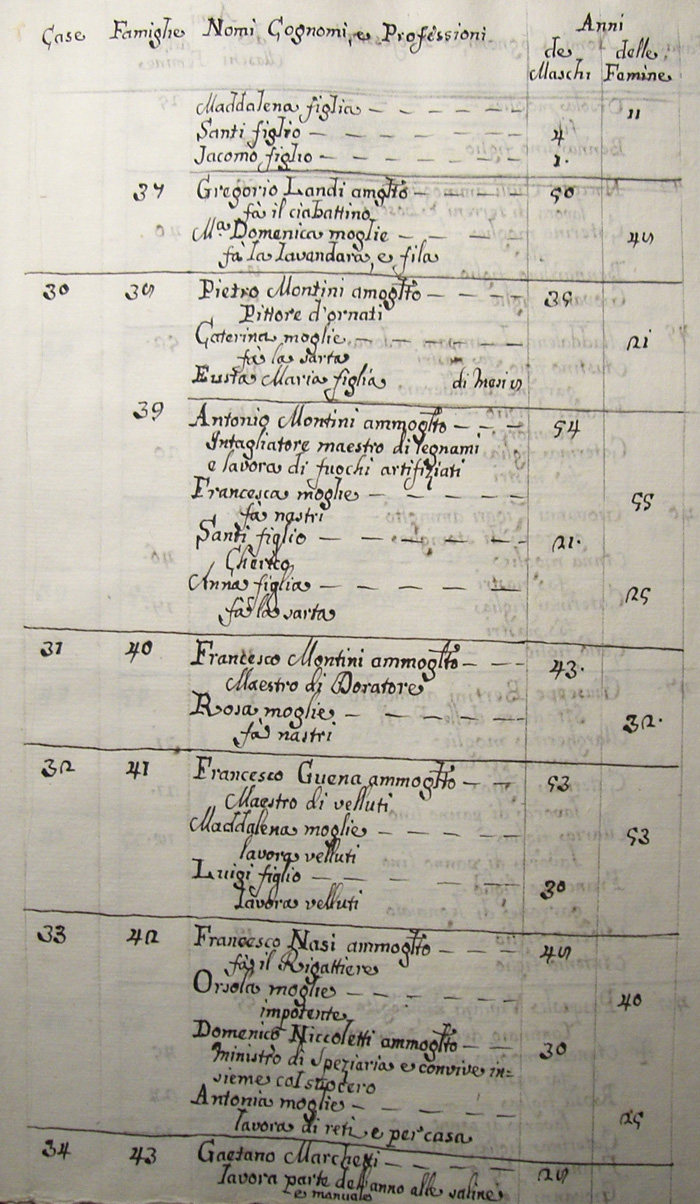 Case Famiglie Nomi Cognomi, e Professioni Anni
de Maschi delle Femine
Maddalena figlia — — — — 11
Santi figlio — — — — — 4
Jacomo figlio — — — — — 1.
37 Gregorio Landi amgl̃to — — — 50
fà il ciabattino
M.ª Domenica moglie — — — 48
fà la lavandara, e fila
30 38 Pietro Montini amogl̃to — — — 35
Pittore d'ornati
Caterina moglie — — — — 21
fà la sarta
Eusta Maria figlia di mesi 8
39 Antonio Montini ammogl̃to — — — 54
Intagliatore maestro di legnami
e lavora di fuochi artifiziati
Francesca moglie — — — — 55
fà nastri
Santi figlio — — — — — 21.
Cherico
Anna figlia — — — — — 25
fà la sarta
31 40 Francesco Montini ammogl̃to — — 43.
Maestro di Doratore
Rosa moglie — — — — — 32.
fà nastri
32 41 Francesco Guena ammogl̃to — — 53
Maestro di velluti
Maddalena moglie — — — — 53
lavora velluti
Luigi figlio — — — — — 30
lavora velluti
33 42 Francesco Nasi ammogl̃to — — — 48
fà il Rigattiere
Orsola moglie — — — — — 40
impotente
Domenico Niccoletti ammogl̃to — — 30
ministro di speziaria e convive in=
sieme col suocero
Antonia moglie — — — — 25
lavora di reti e per casa
34 43 Gaetano Marchexi — — — — 28
lavora parte dell'anno alle saline
e manuale